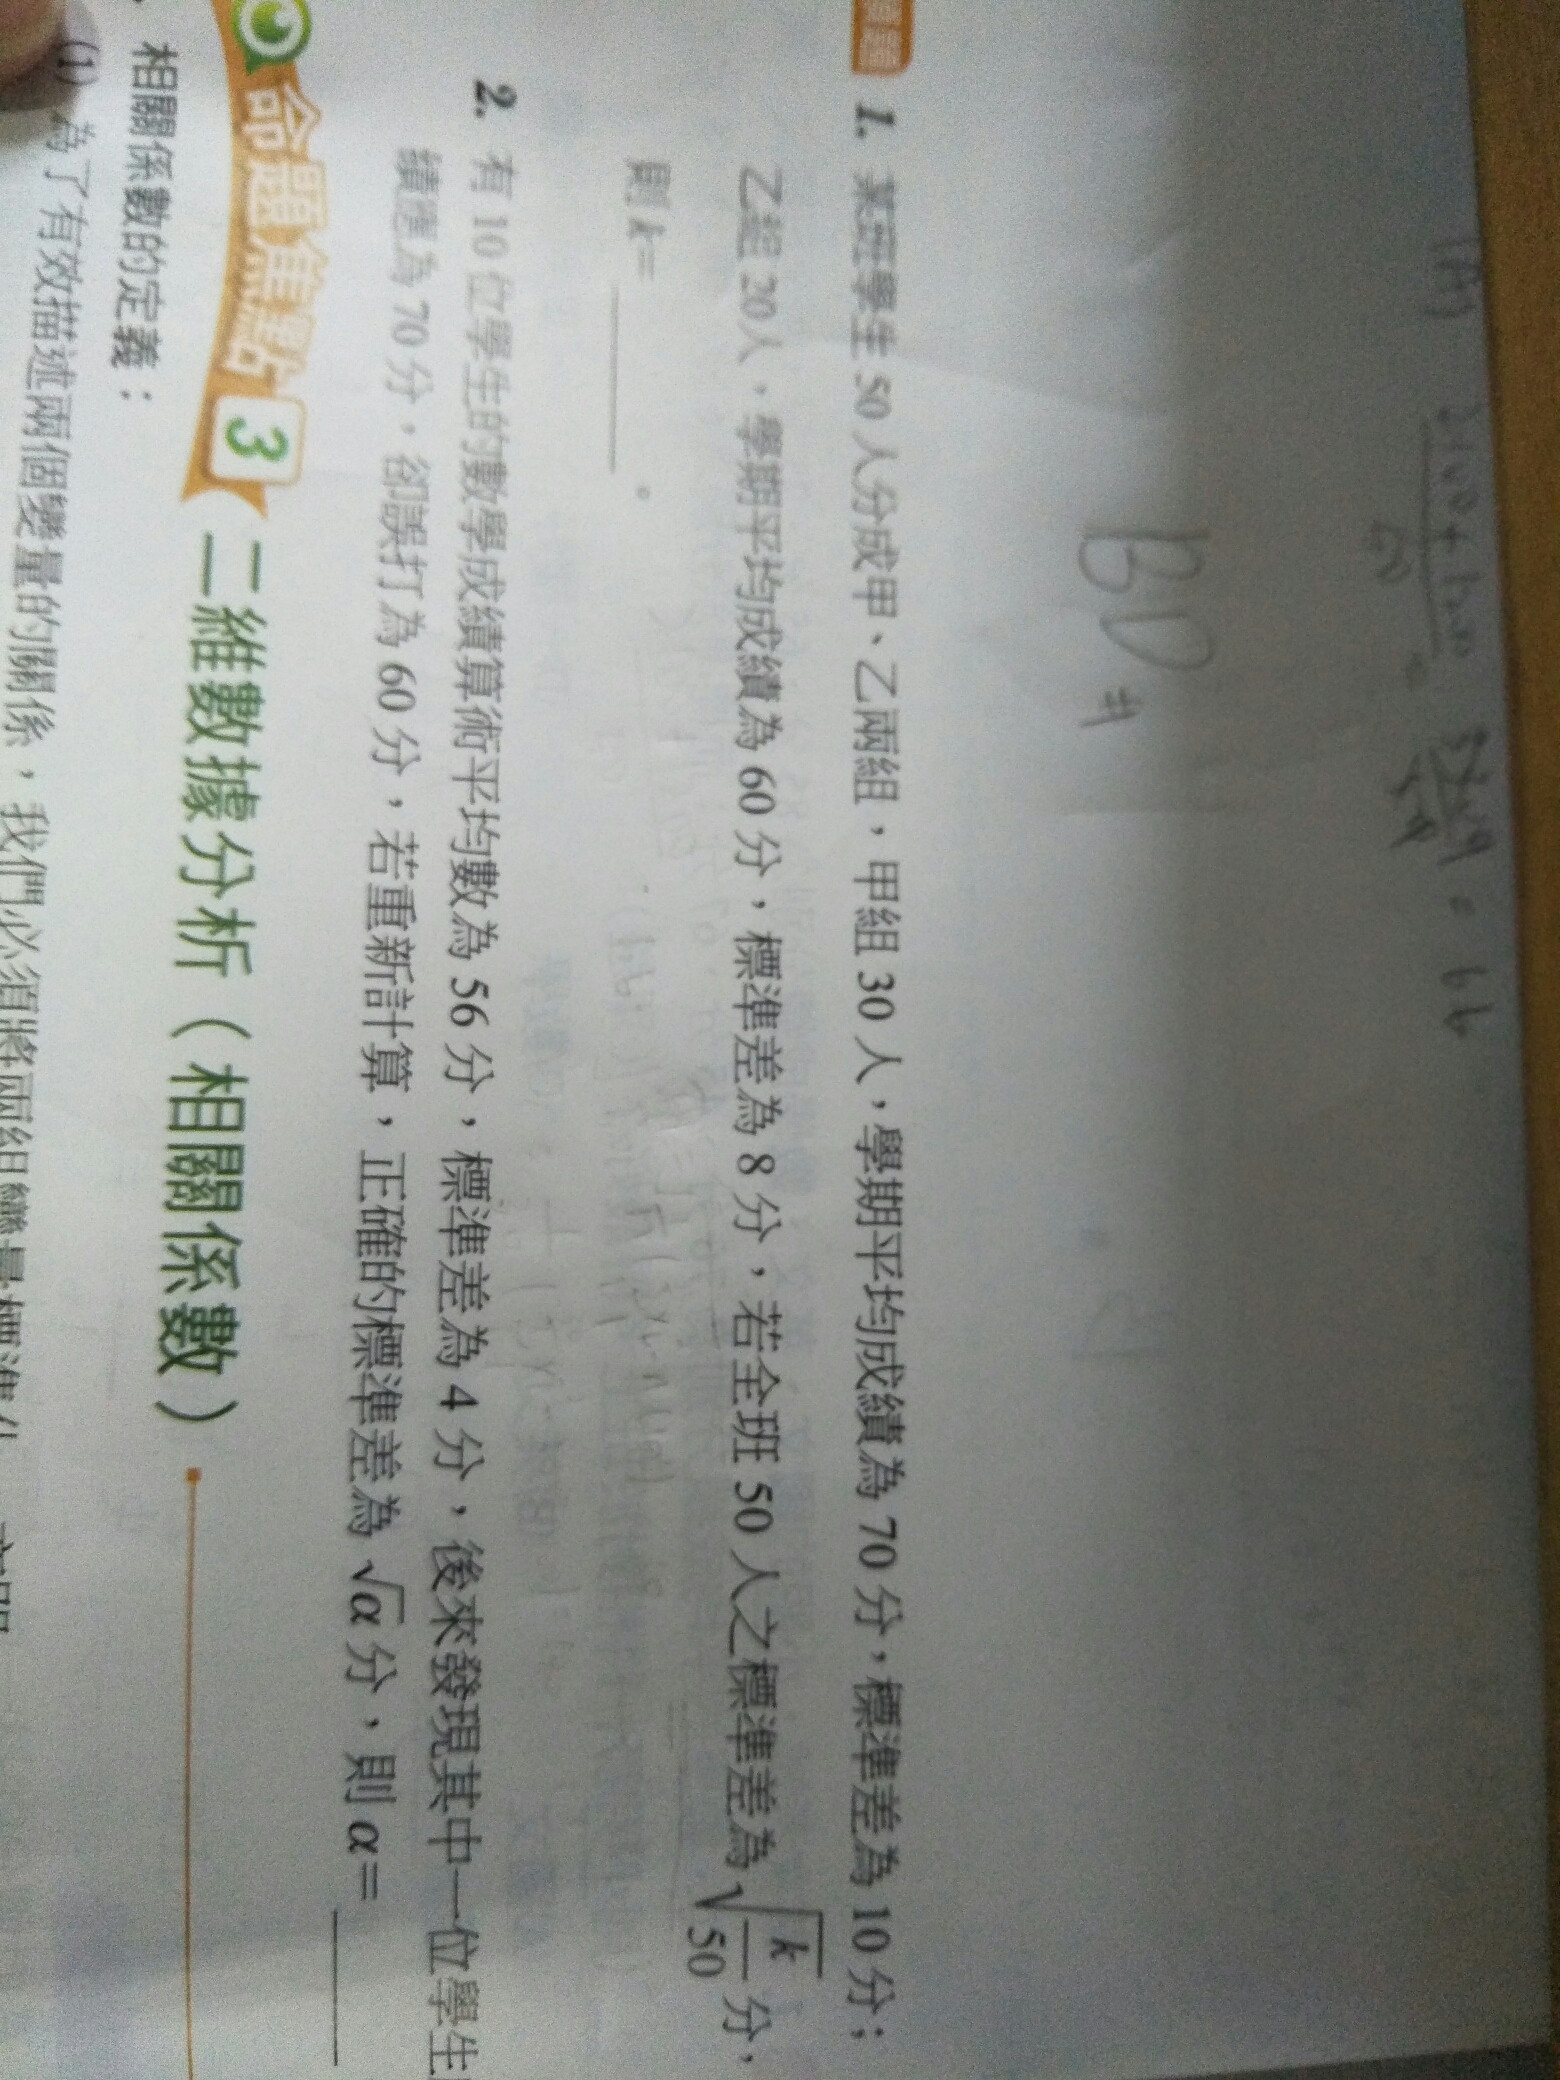 題
1. 某班學生 50 人分成甲、乙兩組，甲組 30 人，學期平均成績為 70 分，標準差為 10 分；
乙組 20 人，學期平均成績為 60 分，標準差為 8 分，若全班 50 人之標準差為 √(k/50) 分，
則 k= ______ 。
BD #
2. 有 10 位學生的數學成績算術平均數為 56 分，標準差為 4 分，後來發現其中一位學生
績應為 70 分，卻誤打為 60 分，若重新計算，正確的標準差為 √α 分，則 α= ______
命題焦點 3 二維數據分析（相關係數）
相關係數的定義：
(1) 為了有效描述兩個變量的關係，我們必須將兩組變量標準化